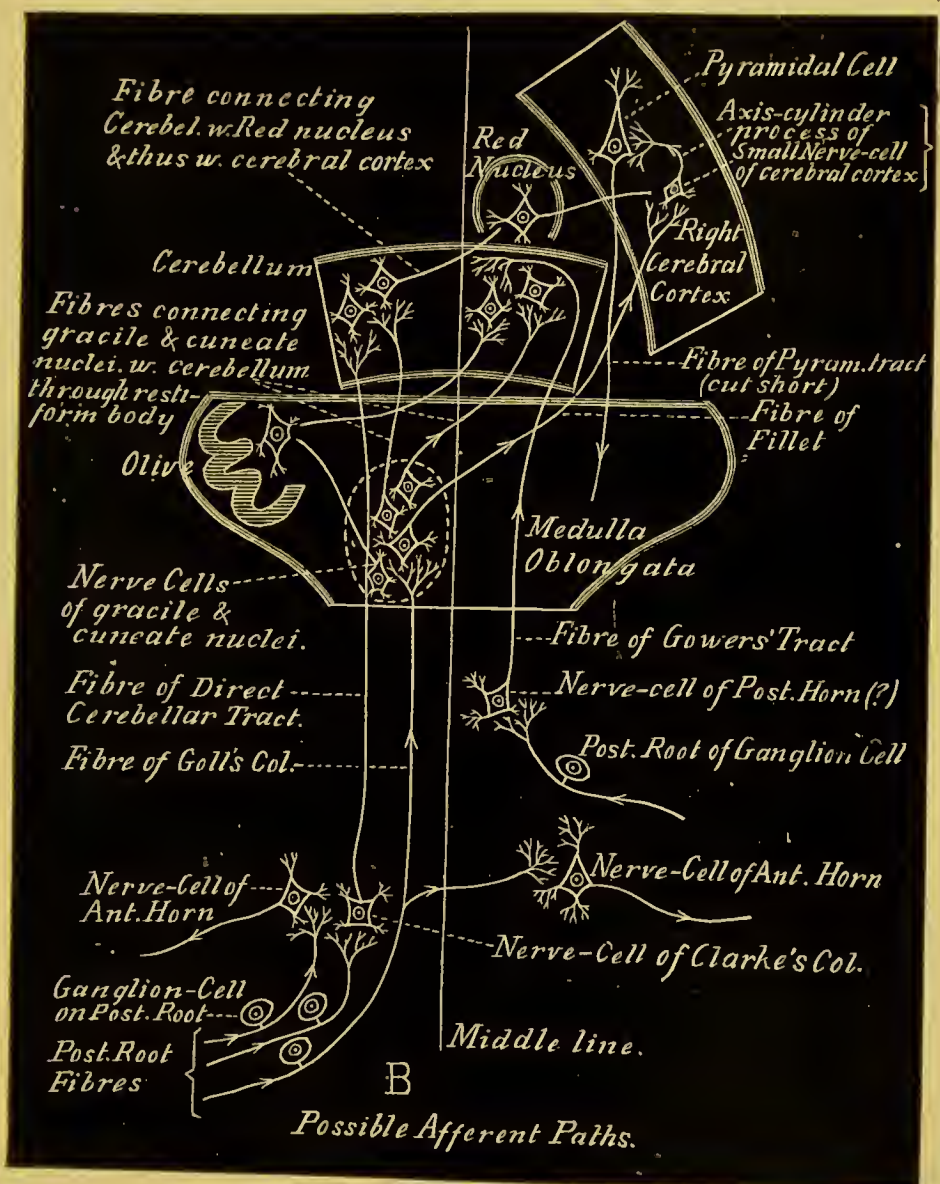 Fibre connecting
Cerebel. w. Red nucleus
& thus w. cerebral cortex
Red
Nucleus
Pyramidal Cell
Axis-cylinder
process of
Small Nerve-cell
of cerebral cortex
Right
Cerebral
Cortex
Cerebellum
Fibres connecting
gracile & cuneate
nuclei. w. cerebellum
through resti-
form body
Fibre of Pyram. tract
(cut short)
Fibre of
Fillet
Olive
Medulla
Oblongata
Nerve Cells
of gracile &
cuneate nuclei.
Fibre of Gowers' Tract
Fibre of Direct
Cerebellar Tract.
Nerve-cell of Post. Horn (?)
Fibre of Goll's Col.
Post. Root of Ganglion Cell
Nerve-Cell of
Ant. Horn
Nerve-Cell of Ant. Horn
Nerve-Cell of Clarke's Col.
Ganglion-Cell
on Post. Root
Post. Root
Fibres
Middle line.
B
Possible Afferent Paths.